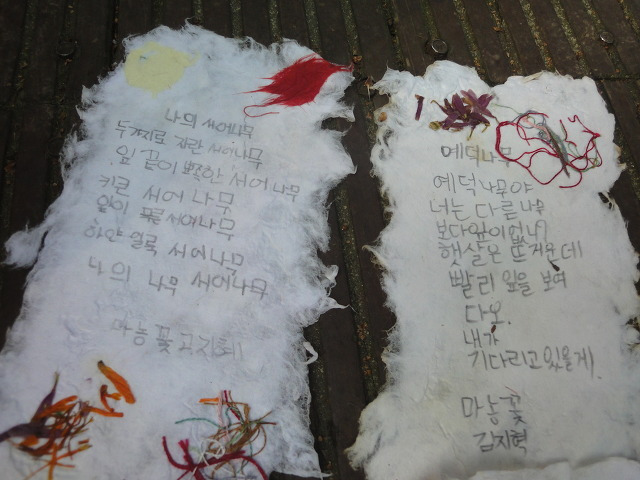 나의 서어나무
두가지로 자란 서어나무
잎 끝이 뾰족한 서어나무
키큰 서어나무
잎이 푸른 서어나무
하얀 얼룩 서어나무
나의 나무 서어나무
마농꽃 고지혜
예덕나무
예덕나무야
너는 다른 나무
보다 잎이 없니?
햇살은 뜨거운데
빨리 잎을 보여
다오.
내가
기다리고 있을게.
마농꽃
김지혁